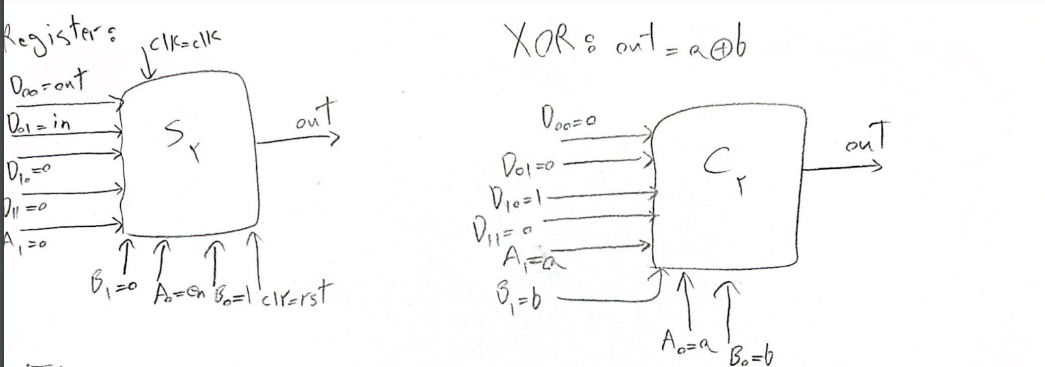 Register:
clk=clk
D00=out
D01=in
D10=0
D11=0
A1=0
Sr
out
B1=0
A0=en
B0=1
clr=rst
XOR: out=a⊕b
D00=0
D01=0
D10=1
D11=0
A1=a
B1=b
Cr
out
A0=a
B0=b